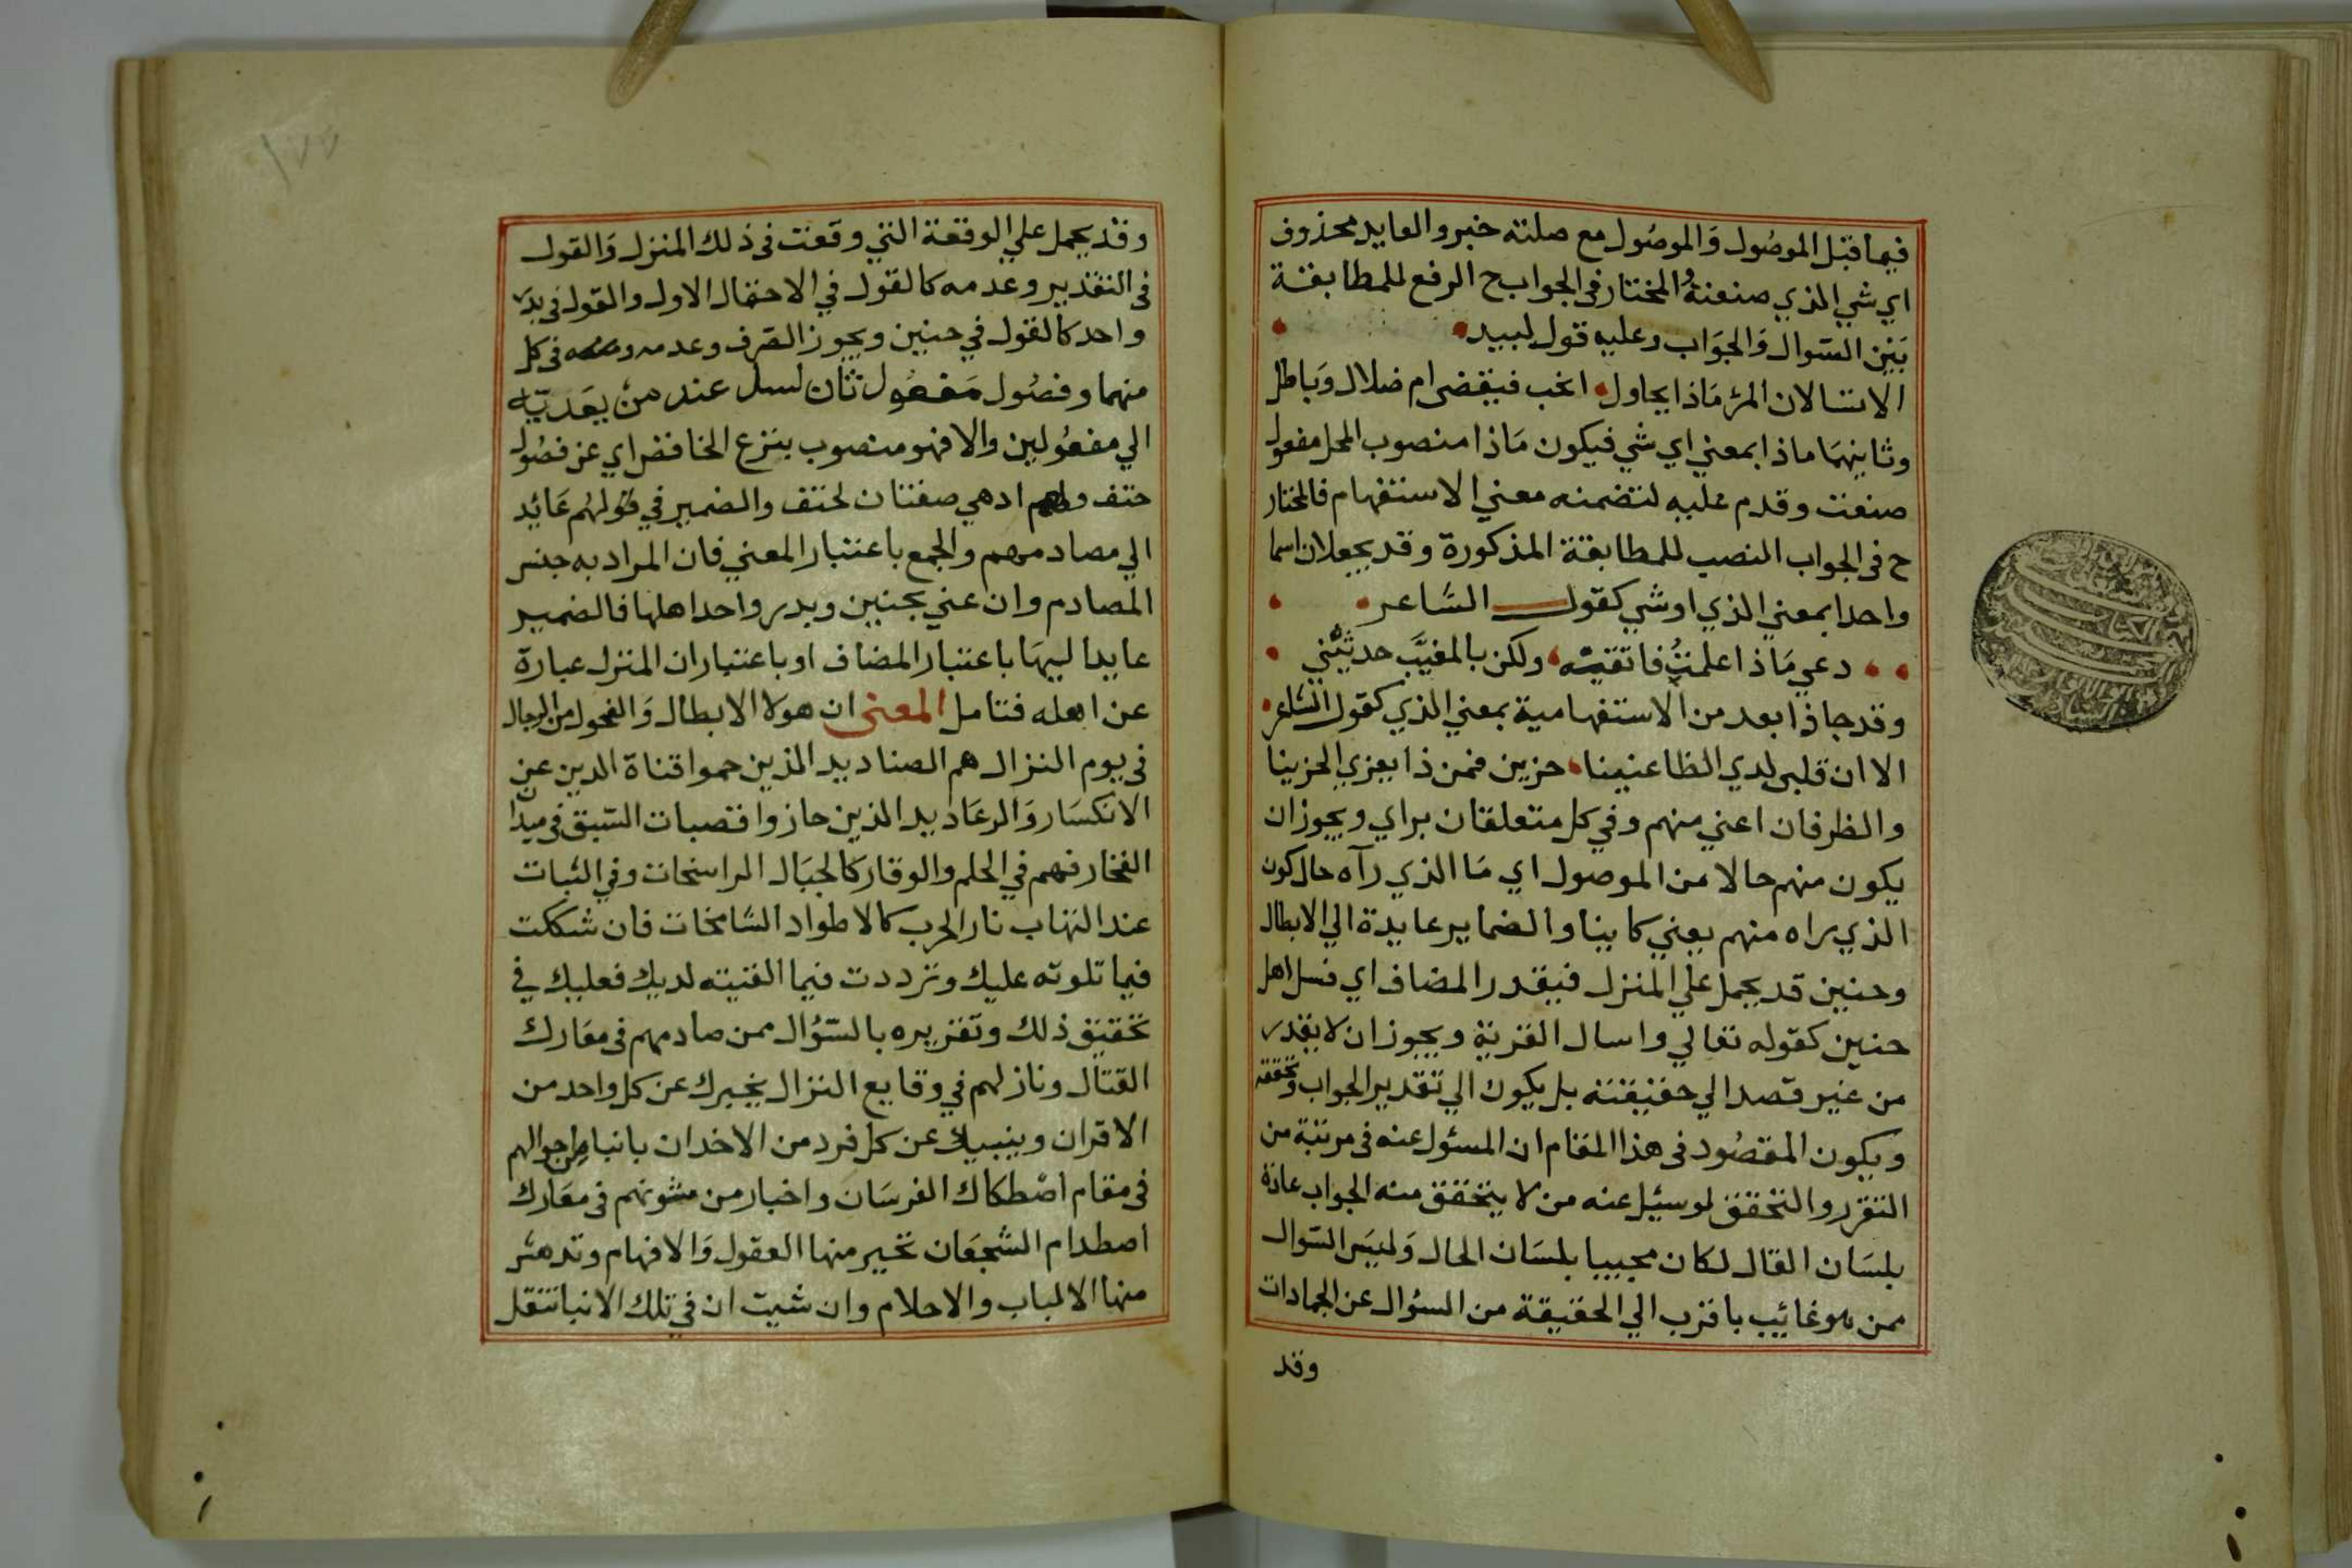 فيما قبل الموصُول وَالموصُول مع صلته خبر والعايد محذوف
اي شي الذي صنعتهُ المختار فى الجواب ح الرفع للمطابقة
بَين السّوال وَالجوَاب وعليه قول لبيد
الا تسالان المرْ مَاذا يحاول انحب فيقضى ام ضلال وَباطل
وثانيهمَا ماذا بمعني اي شي فيكون مَاذا منصوب المحل مفعول
صنعت وقدم عليه لتضمنه معني الاستفهام فالمختار
ح فى الجواب النصب للمطابقة المذكورة وقد يجعلان اسما
واحدا بمعني الذي او شي كقول الشاعر
دعي مَاذا علمتُ فاتقيه ولكن بالمغيَّب حدثيْني
وقد جا ذا بعد من الاستفهامية بمعني الذي كقول الشاعر
الا ان قلبى لدي الظاعنينا حزين فمن ذا يعزي الحزينا
والظرفان اعني منهم وفي كل متعلقان براي ويجوز ان
يكون منهم حالا من الموصول اي مَا الذي رآه حال كون
الذي راه منهم يعني كاينا والضماير عايدة الي الابطال
وحنين قد يحمل علي المنزل فيقدر المضاف اي فسل اهل
حنين كقوله تعالي واسال القرية ويجوز ان لا يقدر
من غير قصد الي حقيقته بل يكون الي تقدير الجواب وتحققه
ويكون المقصُود فى هذا المقام ان المسئول عنه فى مرتبة من
التقرر والتحقق لو سيئل عنه من لا يتحقق منه الجواب عادة
بلسَان القال لكان مجيبا بلسَان الحال وَليسَ السّوال
ممن هو غائب باقرب الي الحقيقة من السؤال عن الجمادات
وقد
١٧٧
وقد يحمل علي الوقعة التي وقعت فى ذلك المنزل وَالقول
فى التقدير وعدمه كالقول في الاحتمال الاول والقول فى بدر
واحد كالقول في حنين ويجوز الصّرف وعدمه فى كل
منهما وفصُول مَفعُول ثان لسل عند منْ يعَدّيه
الي مفعُولين والا فهو منصوب بنزع الخافض اي عن فصُول
حتف ولهم ادهي صفتان لحتف والضمير في قولهُم عَائِد
الي مصادمهم والجمع باعتبار المعني فان المراد به جنس
المصادم وان عني بحنين وبدر واحد اهلها فالضمير
عايد اليهَا باعتبار المضاف او باعتبار ان المنزل عبارة
عن اهله فتامل المعنى ان هولا الابطال وَالفحول من الرجال
فى يوم النزال هم الصناديد الذين حموا قناة الدين عن
الانكسَار وَالرعَاديد الذين حازوا قصبات السّبق فى ميدان
الفخار فهم في الحلم والوقار كالجبَال الراسخات وفي الثبات
عند التهاب نار الحرب كالاطواد الشامخات فان شككت
فيما تلوته عليك وترددت فيما القيته لديك فعليك في
تحقيق ذلك وتقريره بالسّؤال ممن صادمهم فى معَارك
القتال ونازلهم في وقايع النزال يخبرك عن كل واحد من
الاقران وينبيك عن كل فرد من الاخدان بانبا من احوالهم
فى مقام اصْطكاك الفرسَان واخبار من شونهم فى معَارك
اصطدام الشجعَان تحير منها العقول وَالافهام وتدهش
منها الالباب والاحلام وان شيت ان في تلك الانبا تنقل